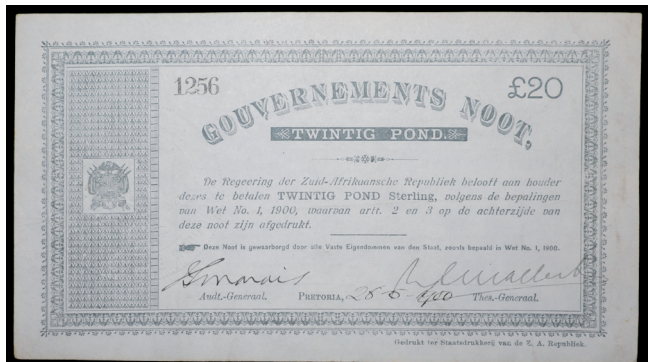 1256 £20
GOUVERNEMENTS NOOT,
TWINTIG POND.
De Regeering der Zuid-Afrikaansche Republiek belooft aan houder
dezes te betalen TWINTIG POND Sterling, volgens de bepalingen
van Wet No. 1, 1900, waarvan artt. 2 en 3 op de achterzijde van
deze noot zijn afgedrukt.
Deze Noot is gewaarborgd door alle Vaste Eigendommen van den Staat, zooals bepaald in Wet No. 1, 1900.
Audt.-Generaal. PRETORIA, 28-5-1900 Thes.-Generaal.
Gedrukt ter Staatsdrukkerij van de Z. A. Republiek.